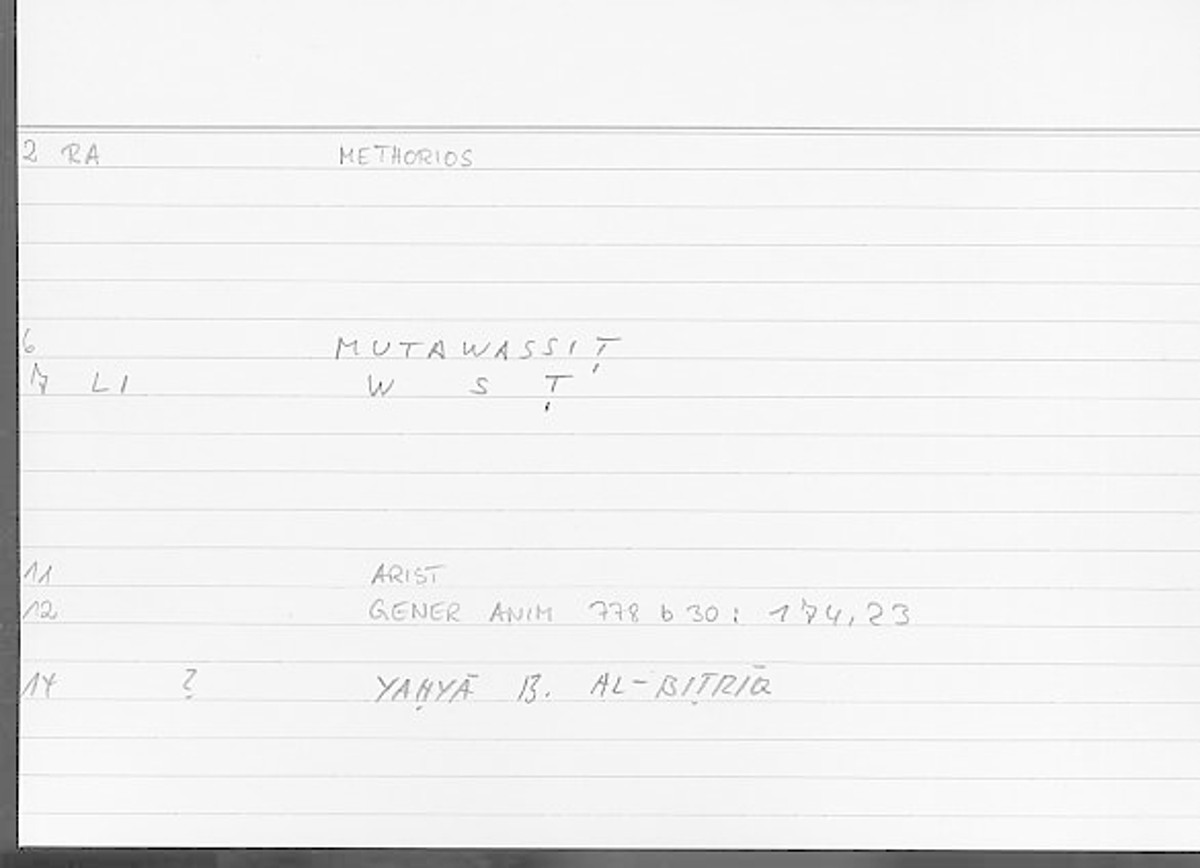 2 RA METHORIOS
6 MUTAWASSIṬ
7 LI W S Ṭ
11 ARIST
12 GENER ANIM 778 b 30 : 174, 23
14 ? YAḤYĀ B. AL-BIṬRĪQ